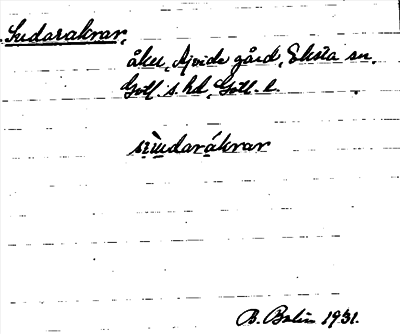 Sudarakrar,
åker, Ajvide gård, Eksta sn,
Gotl. s. hd, Gotl. l.
sùdarákrar
B. Bolin 1931.